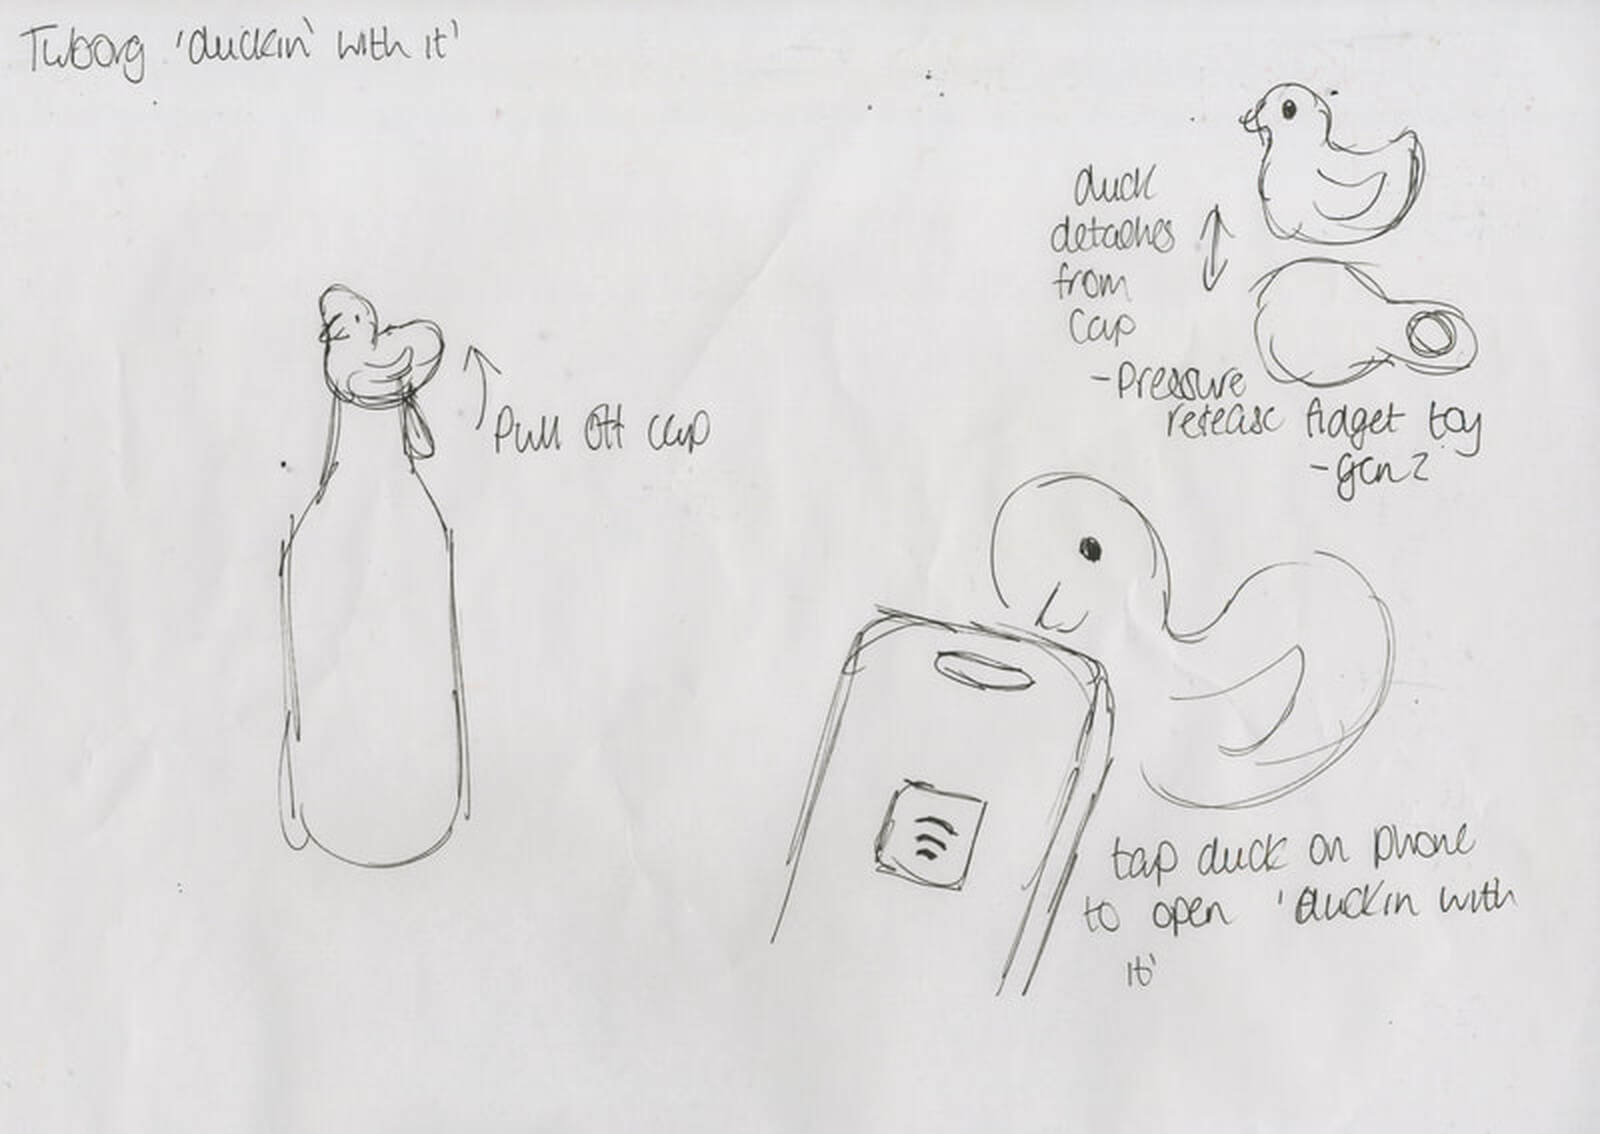 Tuborg 'duckin' with it'
duck
detaches
from
cap
-Pressure
release fidget toy
-gen z
Pull off cap
tap duck on phone
to open 'duckin with
it'